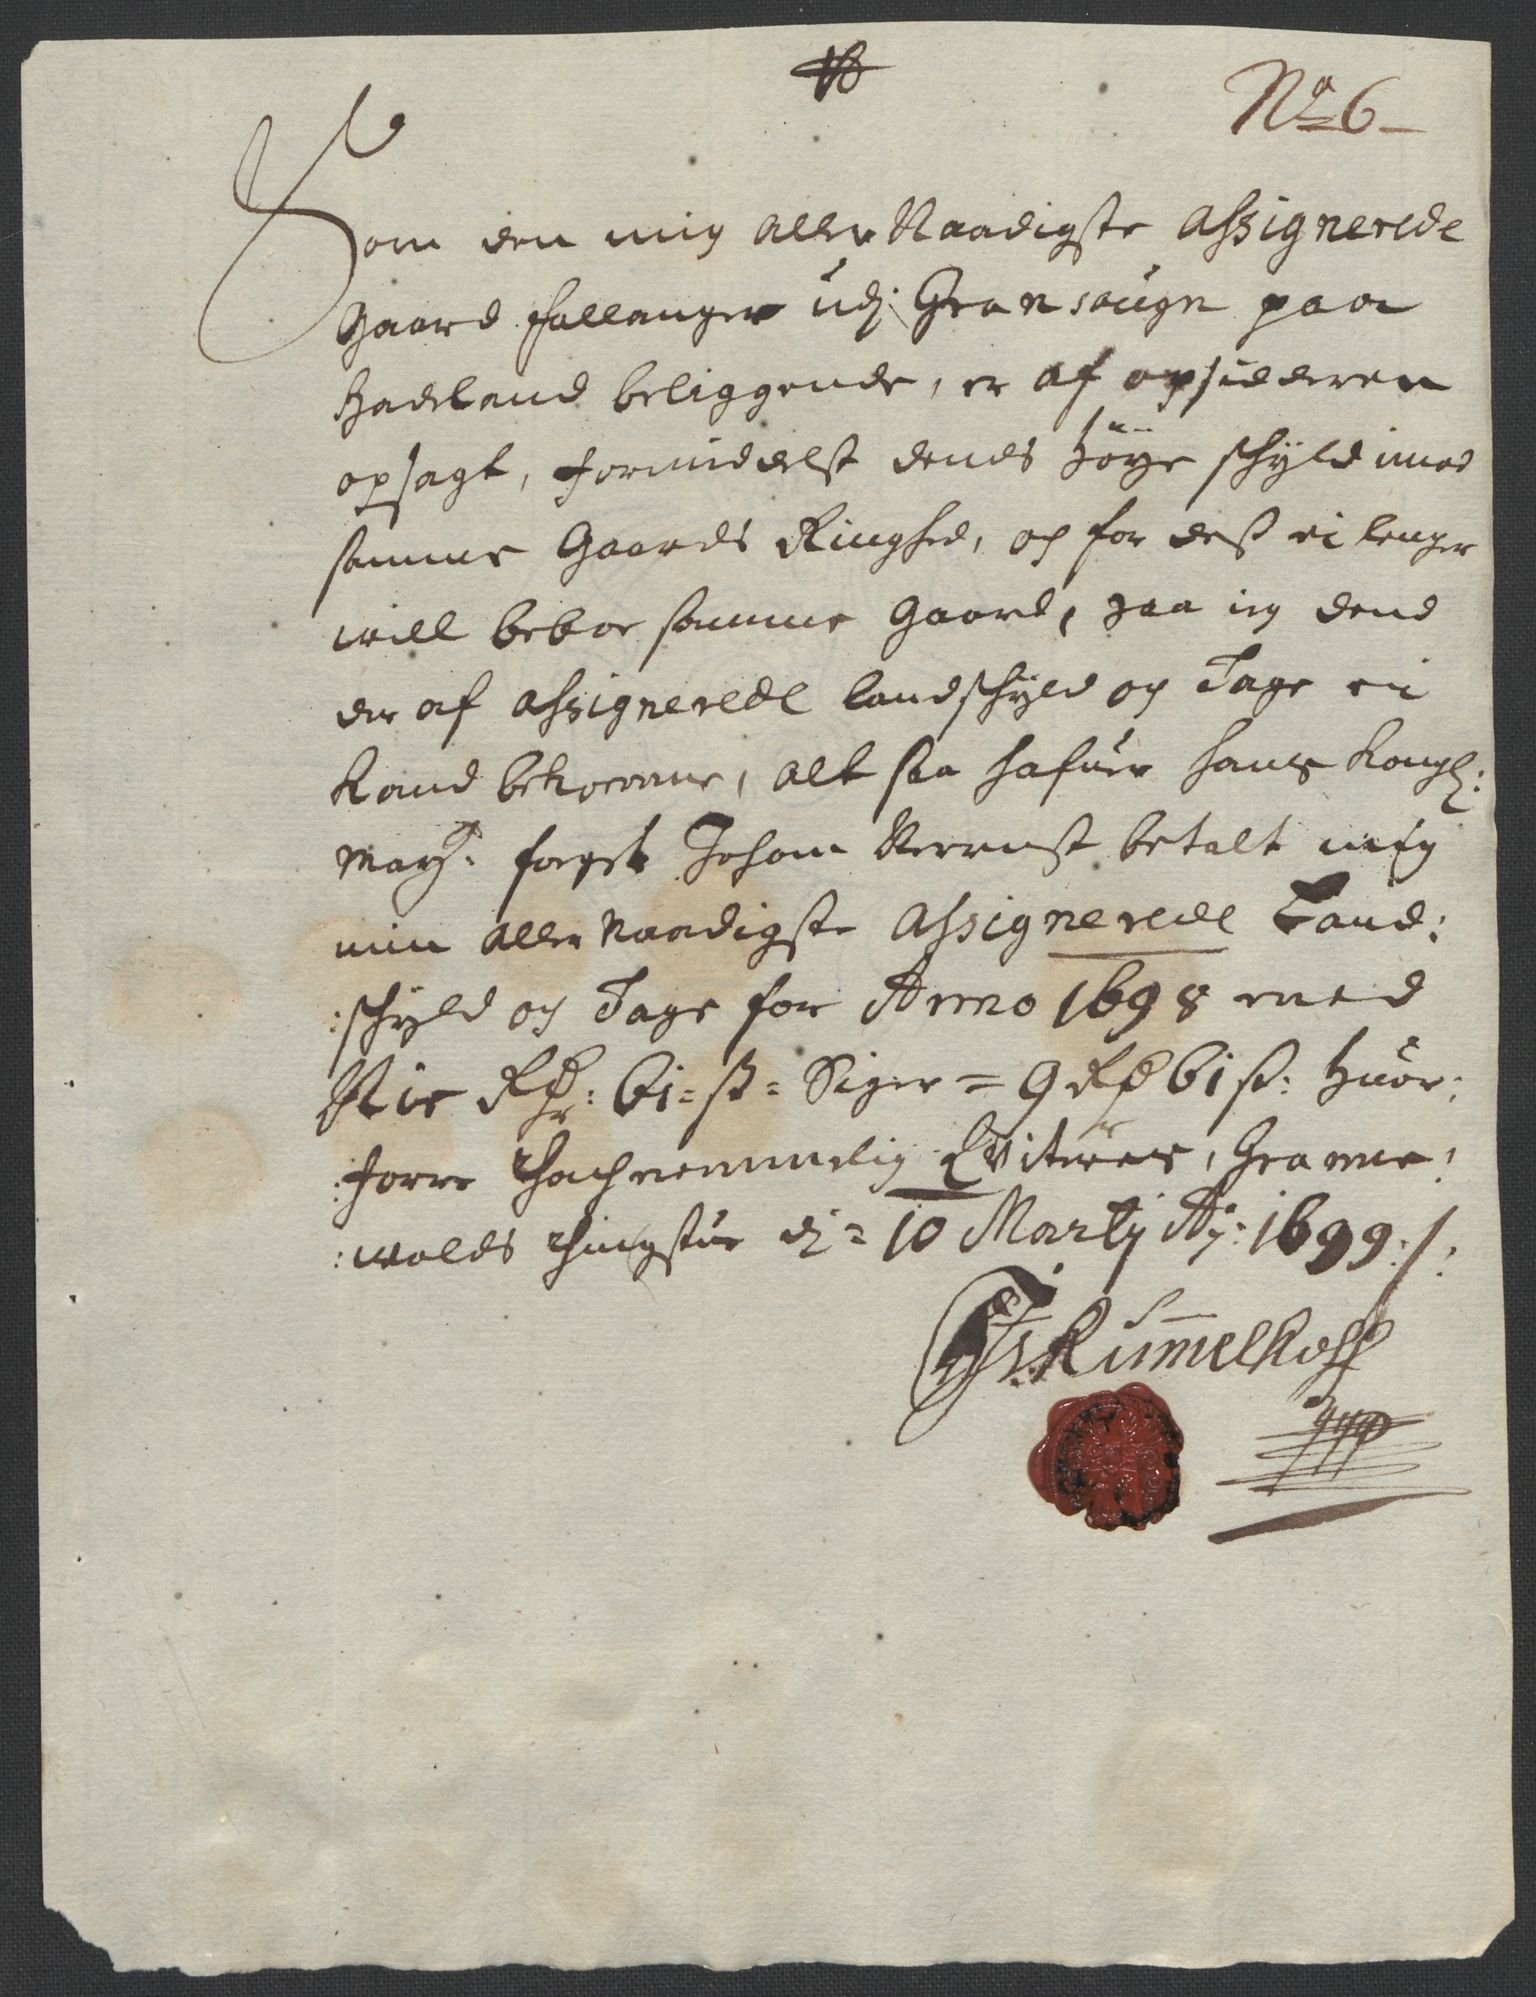 No 6
Som den mig aller Naadigste assignerede
Gaard Fallanger udj Gran sougn paa
Hadeland beliggende, er af opsidderen
opsagt, formiddelst dends höye schyld imod
samme Gaards Ringhed, og for dess ei lenger
will beboe samme Gaard, saa ieg dend
der af assignerede landschyld og Tage ei
Kand bekomme, alt saa hafuer hans Kongl:
Mayts: fogt Johan Vernist betalt mig
min aller Naadigste assignerede Land:
:schyld og Tage for Anno 1698 med
Nie Rdr: 61 = ss = Siger = 9 Rd 61 ss: huor:
:forre hachnemmelig Qviteres, Granne:
:wolds thingstue dj = 10 Martij Ao: 1699 ./.
Rummelhoff